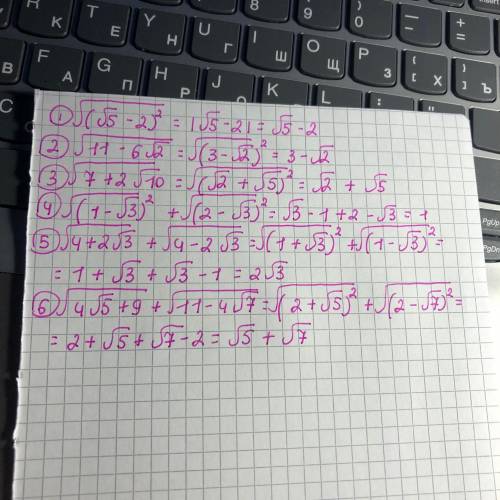 8 9 0 — + =
К Е Н Г Ш Щ З Х Ъ
R T Y U I O P { [ } ]
В А П
F G
С
PgUp
PgDn
① √(√5 -2)² = |√5-2| = √5 -2
② √11 - 6√2 = √(3-√2)² = 3-√2
③ √7 + 2√10 = √(√2 + √5)² = √2 + √5
④ √(1-√3)² + √(2-√3)² = √3 - 1 + 2 - √3 = 1
⑤ √4+2√3 + √4-2√3 = √(1+√3)² + √(1-√3)² =
= 1 + √3 + √3 - 1 = 2√3
⑥ √4√5+9 + √11-4√7 = √(2+√5)² + √(2-√7)² =
= 2+√5+√7-2 = √5 + √7